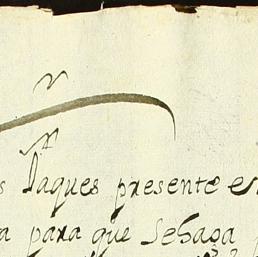 s Jaques presente es
a para que sehaga